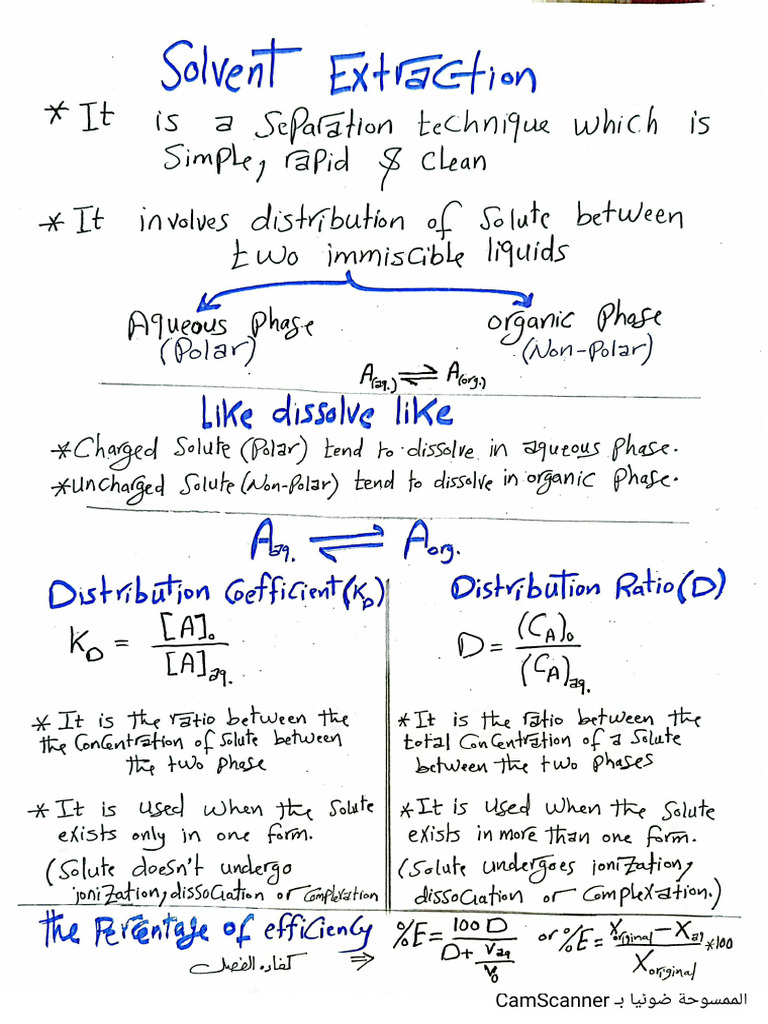 Solvent Extraction
* It is a separation technique which is
simple, rapid & clean
* It involves distribution of solute between
two immiscible liquids
Aqueous phase
(Polar)
organic phase
(Non-Polar)
A(aq.) ⇌ A(org.)
Like dissolve like
* Charged solute (Polar) tend to dissolve in aqueous phase.
* uncharged solute (Non-Polar) tend to dissolve in organic phase.
Aaq. ⇌ Aorg.
Distribution Coefficient (KD)
KD = [A]o / [A]aq.
* It is the ratio between the
the concentration of solute between
the two phase
* It is used when the solute
exists only in one form.
(Solute doesn't undergo
ionization, dissociation or complexation
Distribution Ratio (D)
D = (CA)o / (CA)aq.
* It is the ratio between the
total concentration of a solute
between the two phases
* It is used when the solute
exists in more than one form.
(Solute undergoes ionization,
dissociation or complexation.)
the Percentage of efficiency
كفاءه الفصل ⇒
%E = 100 D / (D + Vaq / Vo) or %E = (Xoriginal - Xaq) / Xoriginal * 100
الممسوحة ضوئيا بـ CamScanner